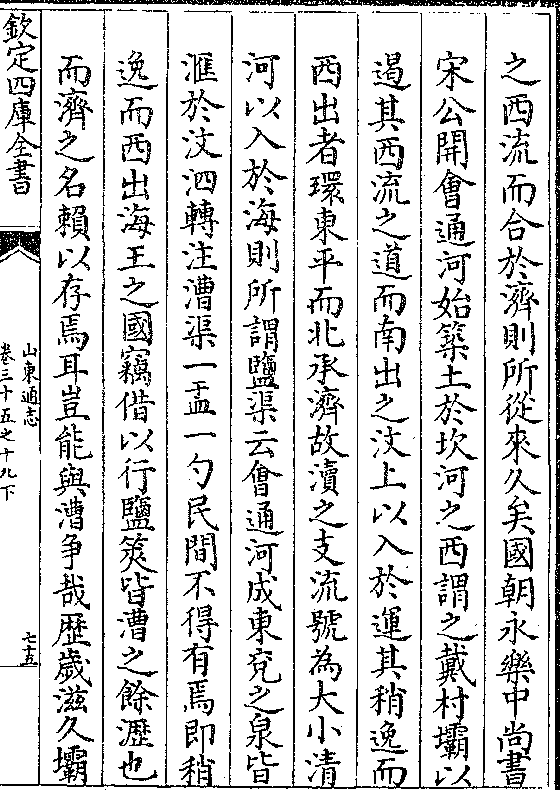 之西流而合於濟則所從來久矣國朝永樂中尚書
宋公開會通河始築土於坎河之西謂之戴村壩以
遏其西流之道而南出之汶上以入於運其稍逸而
西出者環東平而北承濟故瀆之支流號為大小清
河以入於海則所謂鹽渠云會通河成東兖之泉皆
滙於汶泗轉注漕渠一盂一勺民間不得有焉即稍
逸而西出海王之國竊借以行鹽筴皆漕之餘瀝也
而濟之名賴以存焉耳豈能與漕争哉歴歲滋久壩
欽定四庫全書
山東通志
卷三十五之十九下
七十五